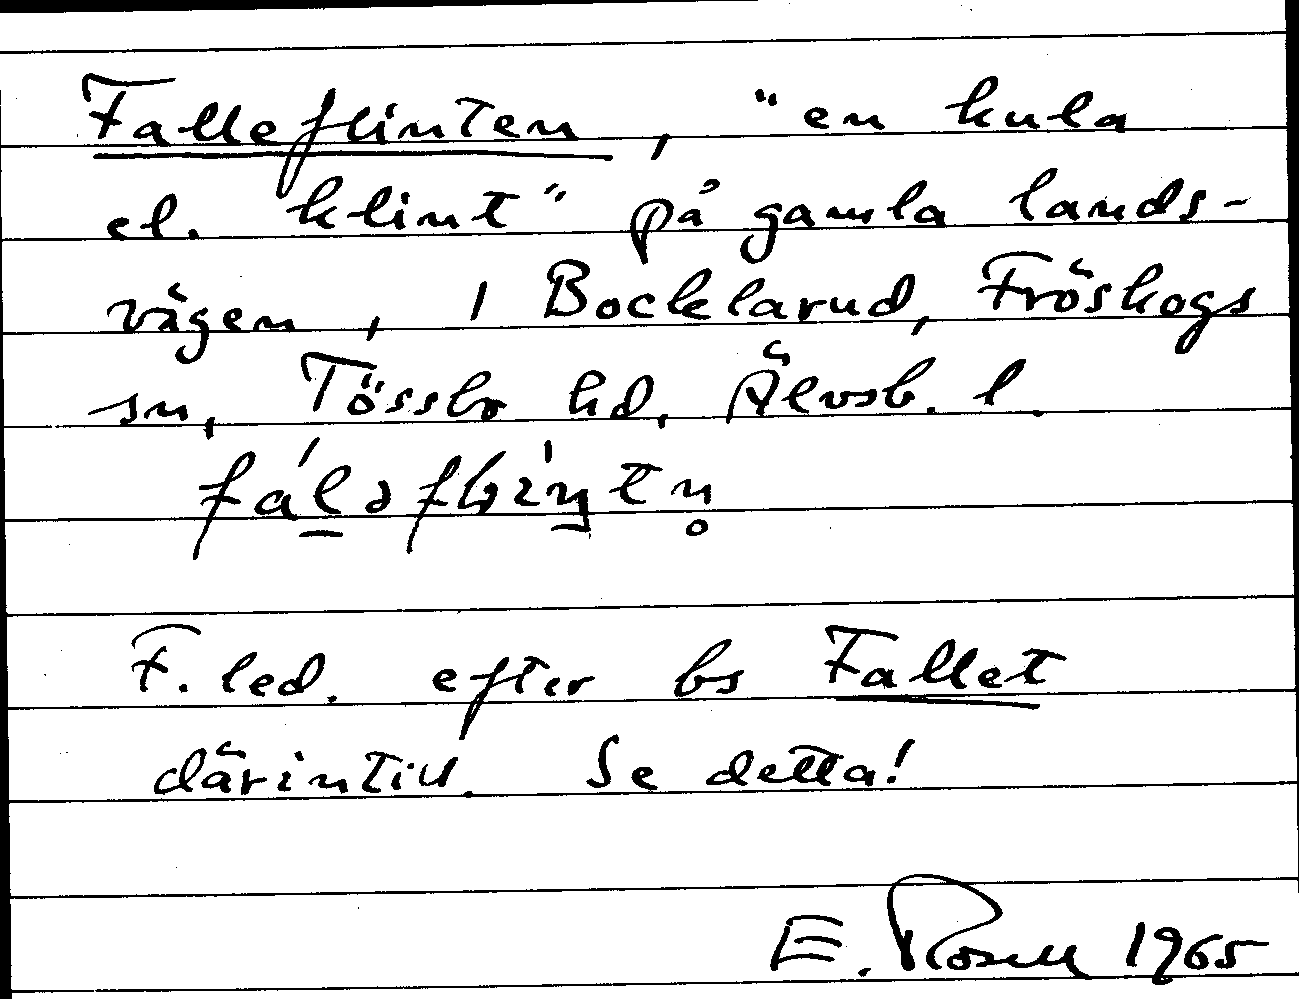 Falleflinten, "en kula
el. klint" på gamla lands-
vägen, i Bocklarud, Fröskogs
sn, Tössbo hd, Älvsb. l.
F. led. efter bs Fallet
därintill. Se detta!
E. Rosell 1965